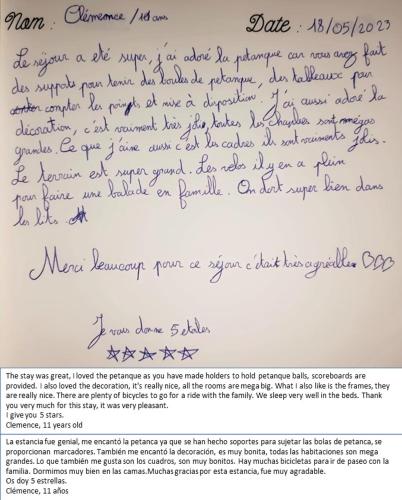 Nom : Clémence / 11 ans Date : 18/05/2023
Le séjour a été super, j'ai adoré la petanque car vous avez fait
des supports pour tenir des boules de petanque, des tableaux pour
compter les points et mise à disposition. J'ai aussi adoré la
décoration, c'est vraiment très joli, toutes les chambres sont mégas
grandes. Ce que j'aime aussi c'est les cadres ils sont vraiments jolis.
Le terrain est super grand. Les velos il y en a plein
pour faire une balade en famille. On dort super bien dans
les lits.
Merci beaucoup pour ce séjour c'était très agréable
Je vous donne 5 etoiles
The stay was great, I loved the petanque as you have made holders to hold petanque balls, scoreboards are
provided. I also loved the decoration, it's really nice, all the rooms are mega big. What I also like is the frames, they
are really nice. There are plenty of bicycles to go for a ride with the family. We sleep very well in the beds. Thank
you very much for this stay, it was very pleasant.
I give you 5 stars.
Clemence, 11 years old
La estancia fue genial, me encantó la petanca ya que se han hecho soportes para sujetar las bolas de petanca, se
proporcionan marcadores. También me encantó la decoración, es muy bonita, todas las habitaciones son mega
grandes. Lo que también me gusta son los cuadros, son muy bonitos. Hay muchas bicicletas para ir de paseo con la
familia. Dormimos muy bien en las camas.Muchas gracias por esta estancia, fue muy agradable.
Os doy 5 estrellas.
Clémence, 11 años